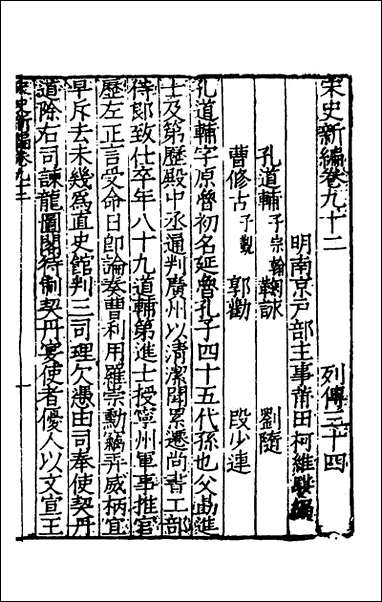 宋史新編卷九十二 列傳三十四
明南京戶部主事莆田柯維騏編
孔道輔子宗翰 鞠詠 劉隨
曹修古子覲 郭勸 段少連
孔道輔字原魯初名延魯孔子四十五代孫也父勗進
士及第歷殿中丞通判廣州以清潔聞累遷尚書工部
侍郎致仕卒年八十九道輔第進士授寧州軍事推官
歷左正言受命日即論奏曹利用羅崇勲竊弄威柄宜
早斥去未幾為直史館判三司理欠憑由司奉使契丹
道除右司諫龍圖閣待制契丹宴使者優人以文宣王
宋史新編卷九十二